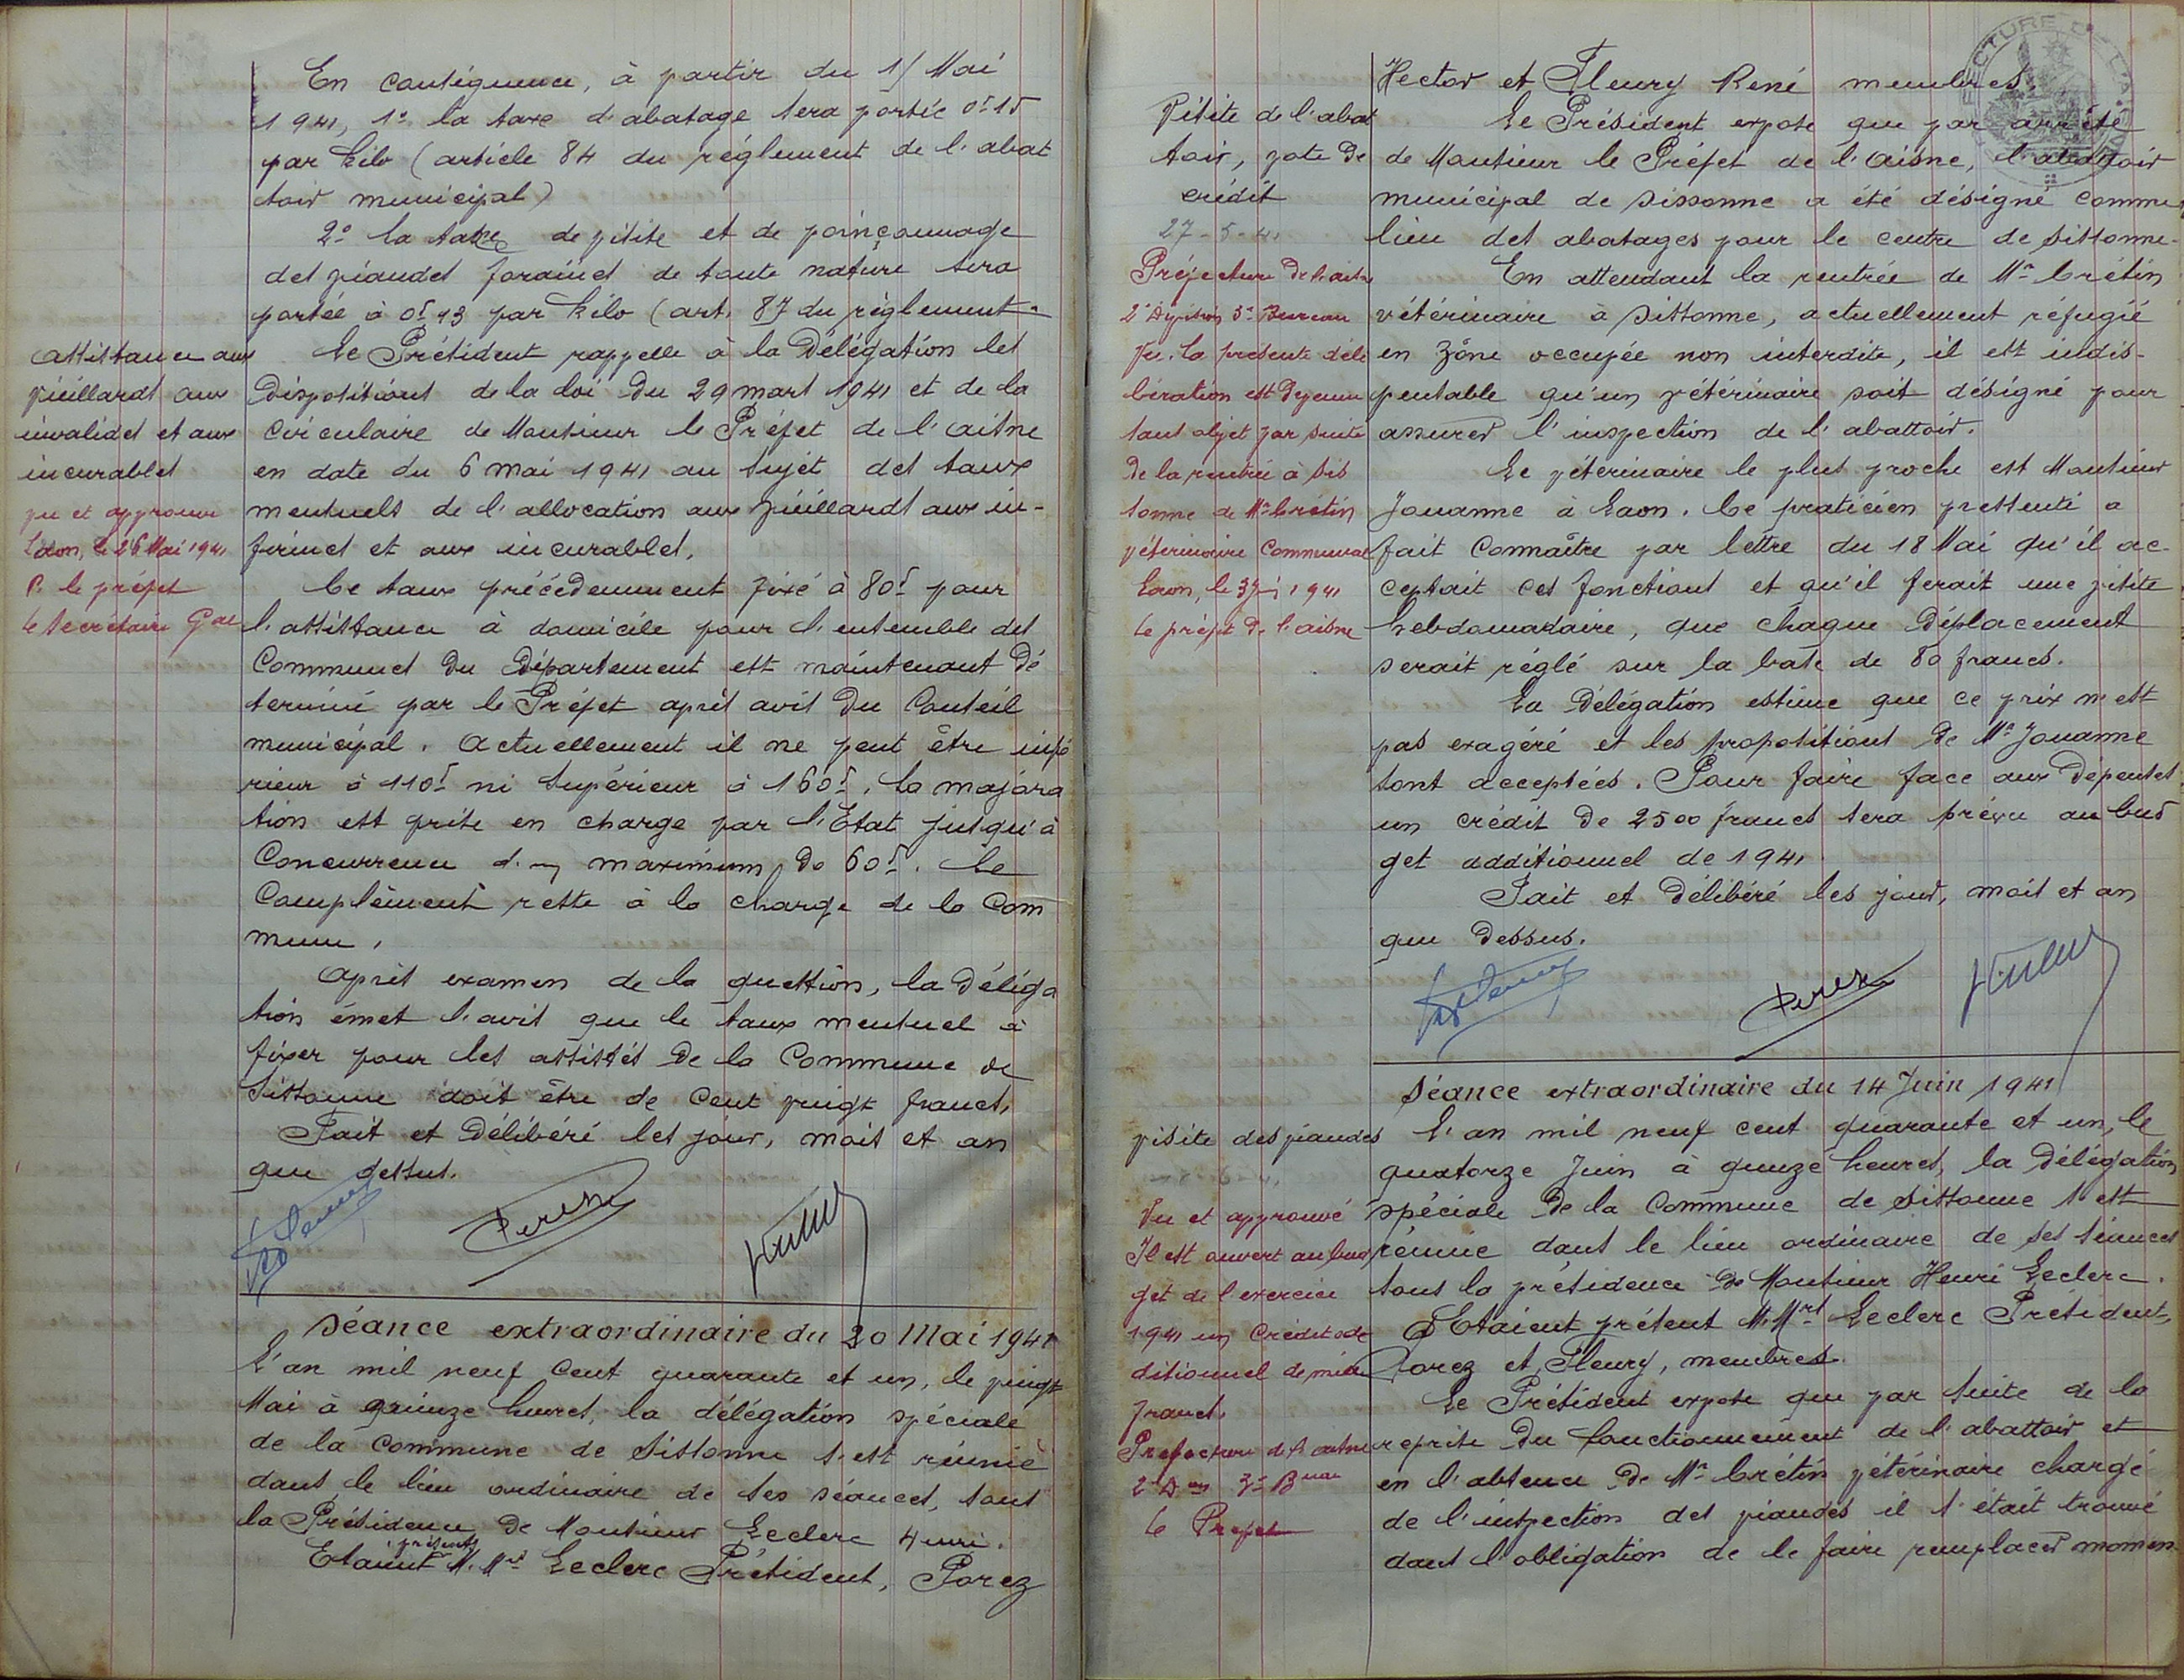 En conséquence, à partir du 1/ Mai
1941, 1° la taxe d'abatage sera portée 0f15
par kilo (article 84 du réglement de l'abat
toir municipal)
2° la taxe de visite et de poinçonnage
des viandes foraines de toute nature sera
portée à 0f13 par kilo (art. 87 du règlement.
Assistance aux
vieillards aux
invalides et aux
incurables
vu et approuvé
Laon, le 26 Mai 1941
P. le préfet
le Secrétaire Gal
Le Président rappelle à la Délégation les
Dispositions de la loi du 29 mars 1941 et de la
circulaire de Monsieur le Préfet de l'Aisne
en date du 6 mai 1941 au sujet des taux
mensuels de l'allocation aux vieillards aux in-
firmes et aux incurables.
Ce taux précédemment fixé à 80f pour
l'assistance à domicile pour l'ensemble des
Communes du Département est maintenant dé
terminé par le Préfet après avis du Conseil
municipal. Actuellement il ne peut être infé
rieur à 110f ni supérieur à 160f. La majora
tion est prise en charge par l'Etat jusqu'à
Concurrence d'un maximum de 60f. Le
Complément reste à la charge de la Com
mune.
Après examen de la question, la Déléga
tion émet l'avis que le taux mensuel à
fixer pour les assistés de la Commune de
Sissonne doit être de cent vingt francs.
Fait et Délibéré les jour, mois et an
que dessus.
Séance extraordinaire du 20 Mai 1941
L'an mil neuf cent quarante et un, le vingt
Mai à quinze heures, la délégation spéciale
de la Commune de Sissonne s'est réunie
dans le lieu ordinaire de ses séances, sous
la Présidence de Monsieur Leclerc Henri.
Etaient présents M.Mrs Leclerc Président, Porez
Hector et Fleury René membres.
Visite de l'abat
toir, vote de
crédit
27-5-41
Préfecture de l'Aisne
2e Division 3e Bureau
Vu. La présente déli
bération est devenue
sans objet par suite
de la rentrée à Sis
sonne de Mr Crétin
vétérinaire Communal
Laon, le 3 Jui 1941
Le préfet de l'Aisne
Le Président expose que par arrêté
de Monsieur le Préfet de l'Aisne, l'abattoir
municipal de Sissonne a été désigné comme
lieu des abatages pour le centre de Sissonne.
En attendant la rentrée de Mr Crétin
vétérinaire à Sissonne, actuellement réfugié
en zône occupée non interdite, il est indis-
pensable qu'un vétérinaire soit désigné pour
assurer l'inspection de l'abattoir.
Le vétérinaire le plus proche est Monsieur
Jouanne à Laon. Ce praticien pressenti a
fait connaître par lettre du 18 Mai qu'il ac-
ceptait ces fonctions et qu'il ferait une visite
hebdomadaire, que chaque déplacement
serait réglé sur la base de 80 francs.
La Délégation estime que ce prix n'est
pas exagéré et les propositions de Mr Jouanne
sont acceptées. Pour faire face aux dépenses
un crédit de 2500 francs sera prévu au bud
get additionnel de 1941
Fait et Délibéré les jour, mois et an
que dessus.
Séance extraordinaire du 14 Juin 1941
visite des viandes
Vu et approuvé
Il est ouvert au bud
get de l'exercice
1941 un Crédit ad
ditionnel de mille
francs.
Préfecture de l'Aisne
2e Don 3e Beau
Le Préfet
L'an mil neuf cent quarante et un, le
quatorze Juin à quinze heures, la Délégation
spéciale de la Commune de Sissonne s'est
réunie dans le lieu ordinaire de ses séances
sous la présidence de Monsieur Henri Leclerc.
Etaient présent M.Mrs Leclerc Président,
Porez et Fleury, membres.
Le Président expose que par suite de la
reprise du fonctionnement de l'abattoir et
en l'absence de Mr Crétin vétérinaire chargé
de l'inspection des viandes il s'était trouvé
dans l'obligation de le faire remplacer momen